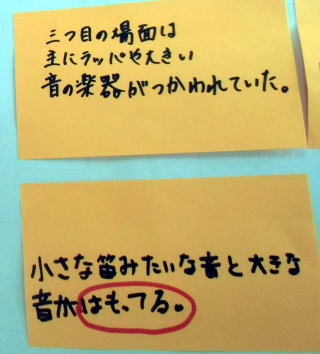 三つ目の場面は
主にラッパや大きい
音の楽器がつかわれていた。
小さな笛みたいな音と大きな
音がはもってる。